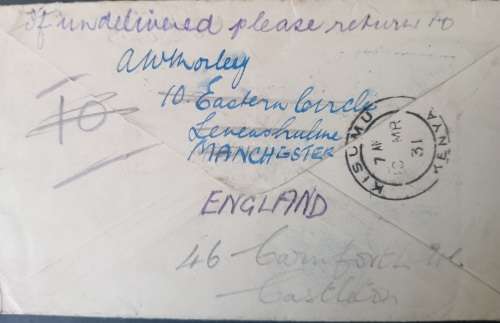 If undelivered please return to
AW Morley
10 Eastern Circle
Levenshulme
MANCHESTER
ENGLAND
10
KISUMU
7 AM
MR
31
KENYA
46 Carnforth
Castleton